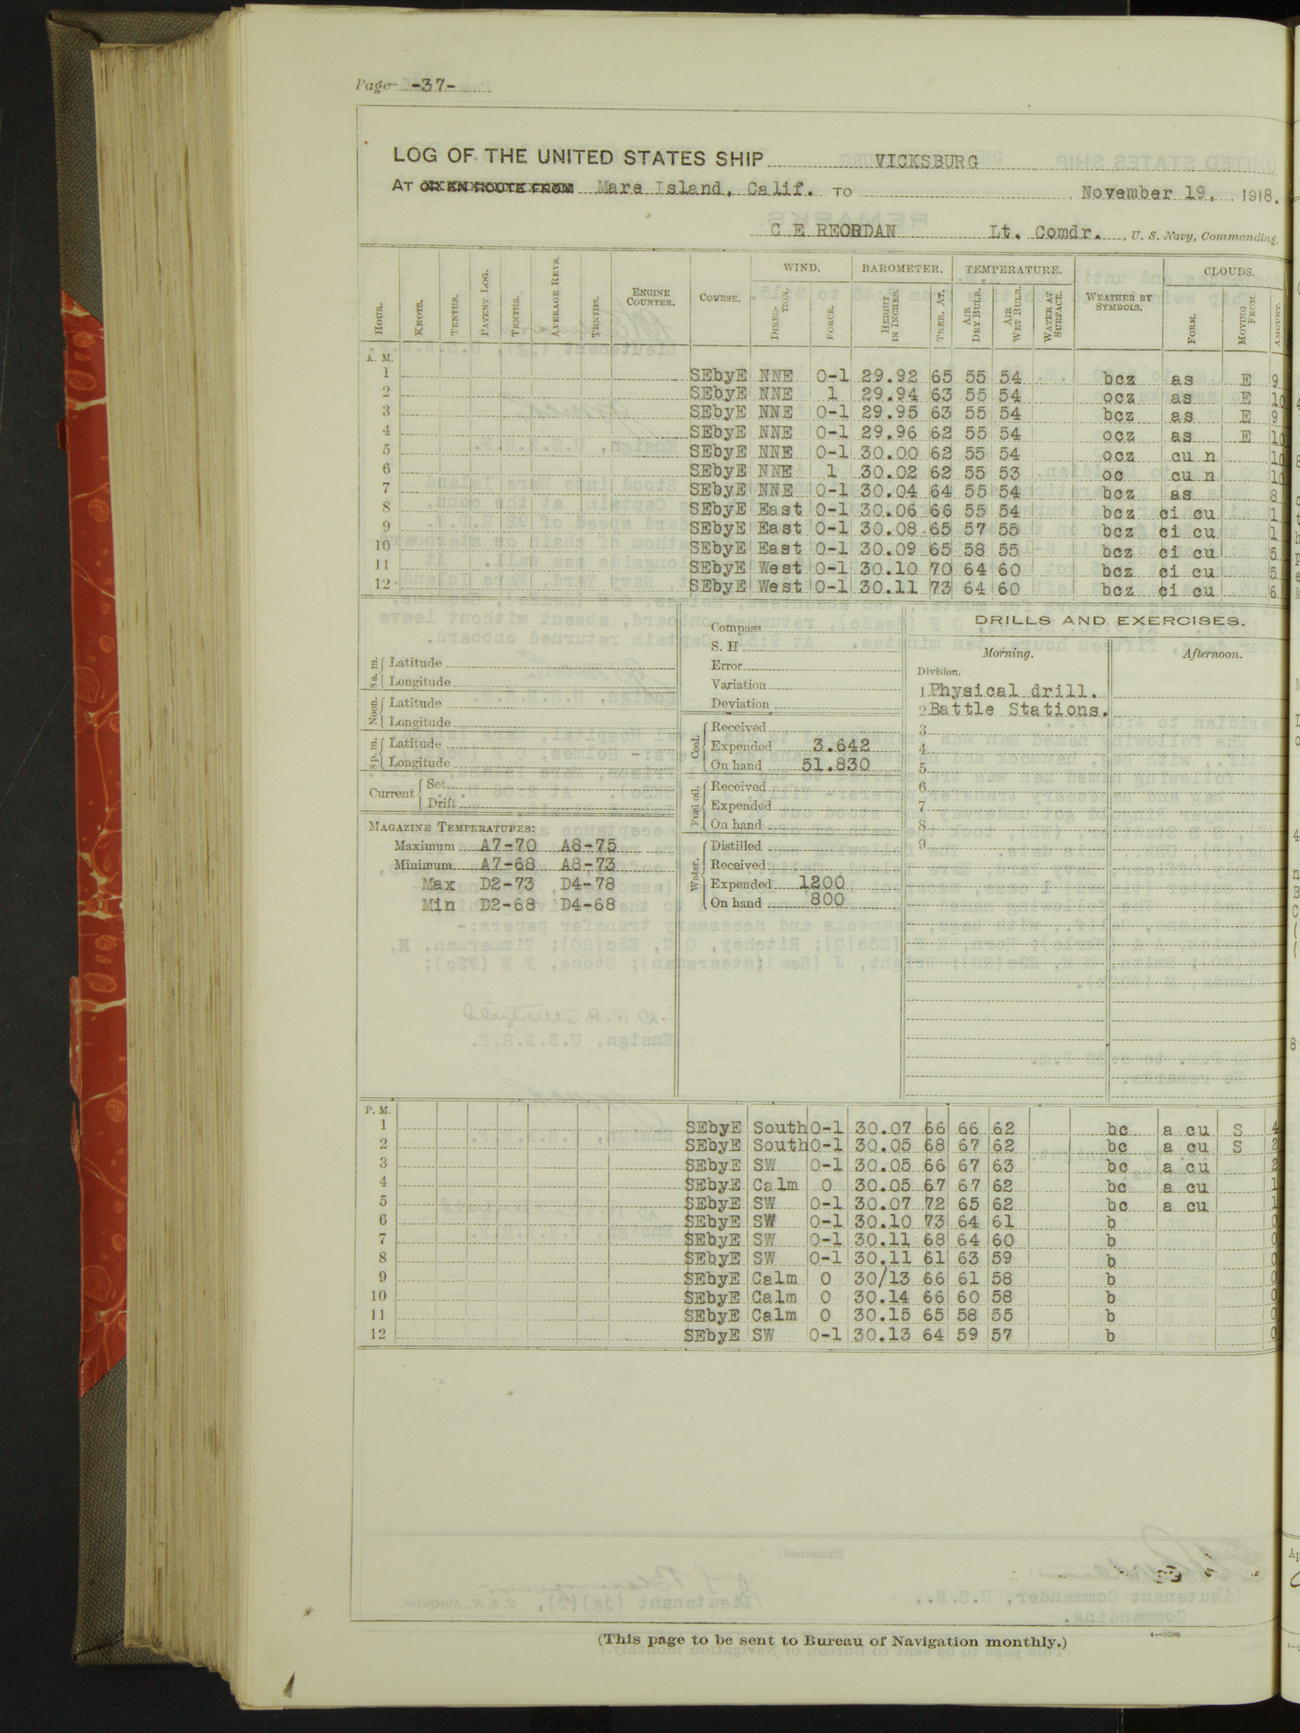 Page -37-
LOG OF THE UNITED STATES SHIP VICKSBURG
AT OR EN ROUTE FROM Mare Island, Calif. TO , November 19, , 1918.
C E REORDAN Lt. Comdr. , U. S. Navy, Commanding.
WIND. BAROMETER. TEMPERATURE. CLOUDS.
HOUR. KNOTS. TENTHS. PATENT LOG. TENTHS. AVERAGE REVS. TENTHS. ENGINE COUNTER. COURSE. DIREC-TION. FORCE. HEIGHT IN INCHES. THER. AT. AIR DRY BULB. AIR WET BULB. WATER AT SURFACE. WEATHER BY SYMBOLS. FORM. MOVING FROM. AMOUNT.
A. M.
1 SEbyE NNE 0-1 29.92 65 55 54 bcz as E 9
2 SEbyE NNE 1 29.94 63 55 54 ocz as E 10
3 SEbyE NNE 0-1 29.95 63 55 54 bcz as E 9
4 SEbyE NNE 0-1 29.96 62 55 54 ocz as E 10
5 SEbyE NNE 0-1 30.00 62 55 54 ocz cu n 10
6 SEbyE NNE 1 30.02 62 55 53 oc cu n 10
7 SEbyE NNE 0-1 30.04 64 55 54 bcz as 8
8 SEbyE East 0-1 30.06 66 55 54 bcz ci cu 1
9 SEbyE East 0-1 30.08 65 57 55 bcz ci cu 1
10 SEbyE East 0-1 30.09 65 58 55 bcz ci cu 5
11 SEbyE West 0-1 30.10 70 64 60 bcz ci cu 5
12 SEbyE West 0-1 30.11 73 64 60 bcz ci cu 6
8 a. m. Latitude
Longitude
Noon. Latitude
Longitude
8 p. m. Latitude
Longitude
Current Set
Drift
MAGAZINE TEMPERATURES:
Maximum A7-70 A8-75
Minimum A7-68 A8-73
Max D2-73 D4-78
Min D2-68 D4-68
Compass
S. H
Error
Variation
Deviation
Coal. Received
Expended 3.642
On hand 51.830
Fuel oil. Received
Expended
On hand
Water. Distilled
Received
Expended 1200
On hand 800
DRILLS AND EXERCISES.
Morning. Afternoon.
Division.
1 Physical drill.
2 Battle Stations.
3
4
5
6
7
8
9
P. M.
1 SEbyE South 0-1 30.07 66 66 62 bc a cu S 4
2 SEbyE South 0-1 30.05 68 67 62 bc a cu S 2
3 SEbyE SW 0-1 30.05 66 67 63 bc a cu 2
4 SEbyE Calm 0 30.05 67 67 62 bc a cu 1
5 SEbyE SW 0-1 30.07 72 65 62 bc a cu 1
6 SEbyE SW 0-1 30.10 73 64 61 b 0
7 SEbyE SW 0-1 30.11 68 64 60 b 0
8 SEbyE SW 0-1 30.11 61 63 59 b 0
9 SEbyE Calm 0 30/13 66 61 58 b 0
10 SEbyE Calm 0 30.14 66 60 58 b 0
11 SEbyE Calm 0 30.15 65 58 55 b 0
12 SEbyE SW 0-1 30.13 64 59 57 b 0
(This page to be sent to Bureau of Navigation monthly.)